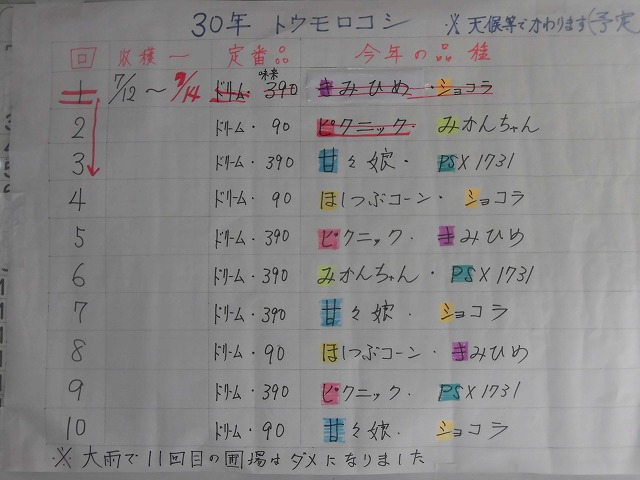 30年 トウモロコシ ※天候等でかわります(予定
回 収穫一 定番品 今年の品種
1 7/12〜7/14 ドリーム・味来390 きみひめ・ショコラ
2 ドリーム・90 ピクニック・みかんちゃん
3 ドリーム・390 甘々娘・PSX1731
4 ドリーム・90 ほしつぶコーン・ショコラ
5 ドリーム・390 ピクニック・きみひめ
6 ドリーム・390 みかんちゃん・PSX1731
7 ドリーム・390 甘々娘・ショコラ
8 ドリーム・90 ほしつぶコーン・きみひめ
9 ドリーム・390 ピクニック・PSX1731
10 ドリーム・90 甘々娘・ショコラ
※大雨で11回目の圃場はダメになりました